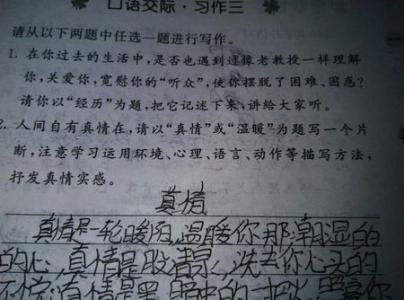 口语交际·习作三
请从以下两题中任选一题进行写作。
1. 在你过去的生活中，是否也遇到过像老教授一样理解
你，关爱你，宽慰你的“听众”，使你摆脱了困难、困惑？
请你以“经历”为题，把它记述下来，讲给大家听。
2. 人间自有真情在，请以“真情”或“温暖”为题写一个片
断，注意学习运用环境、心理、语言、动作等描写方法，
抒发真情实感。
真情
真情是一轮暖阳，温暖你那潮湿的
的心，真情是股清泉，洗去你心头的
真情是黑暗中的一把火，照亮你